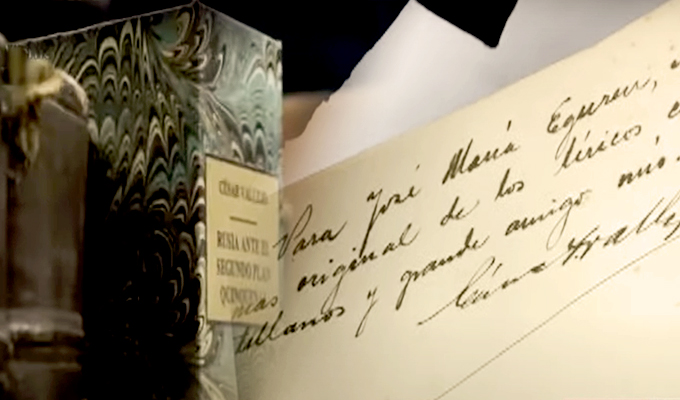 CÉSAR VALLEJO
RUSIA ANTE EL
SEGUNDO PLAN
QUINQUEN
Para José María Eguren,
mas original de los líricos
tellanos y grande amigo mío.
César A. Vallej